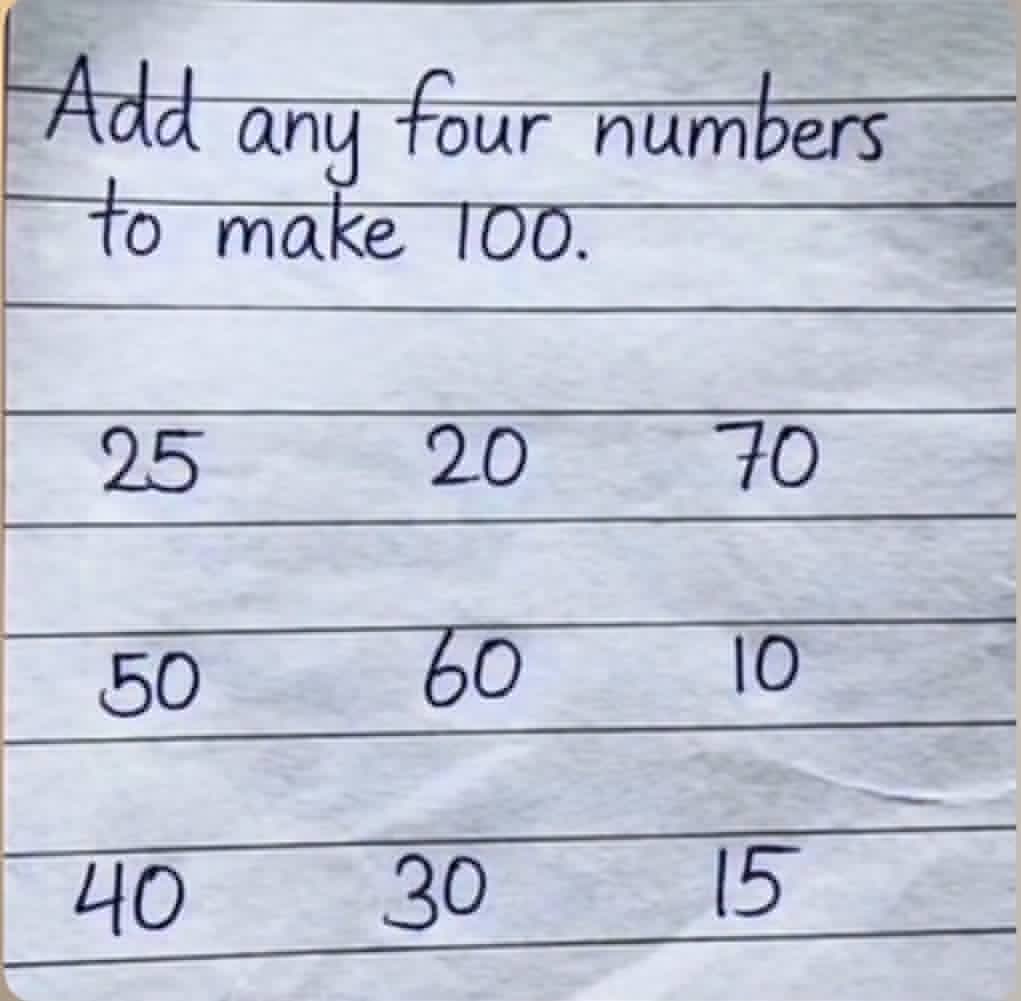 Add any four numbers
to make 100.
25 20 70
50 60 10
40 30 15